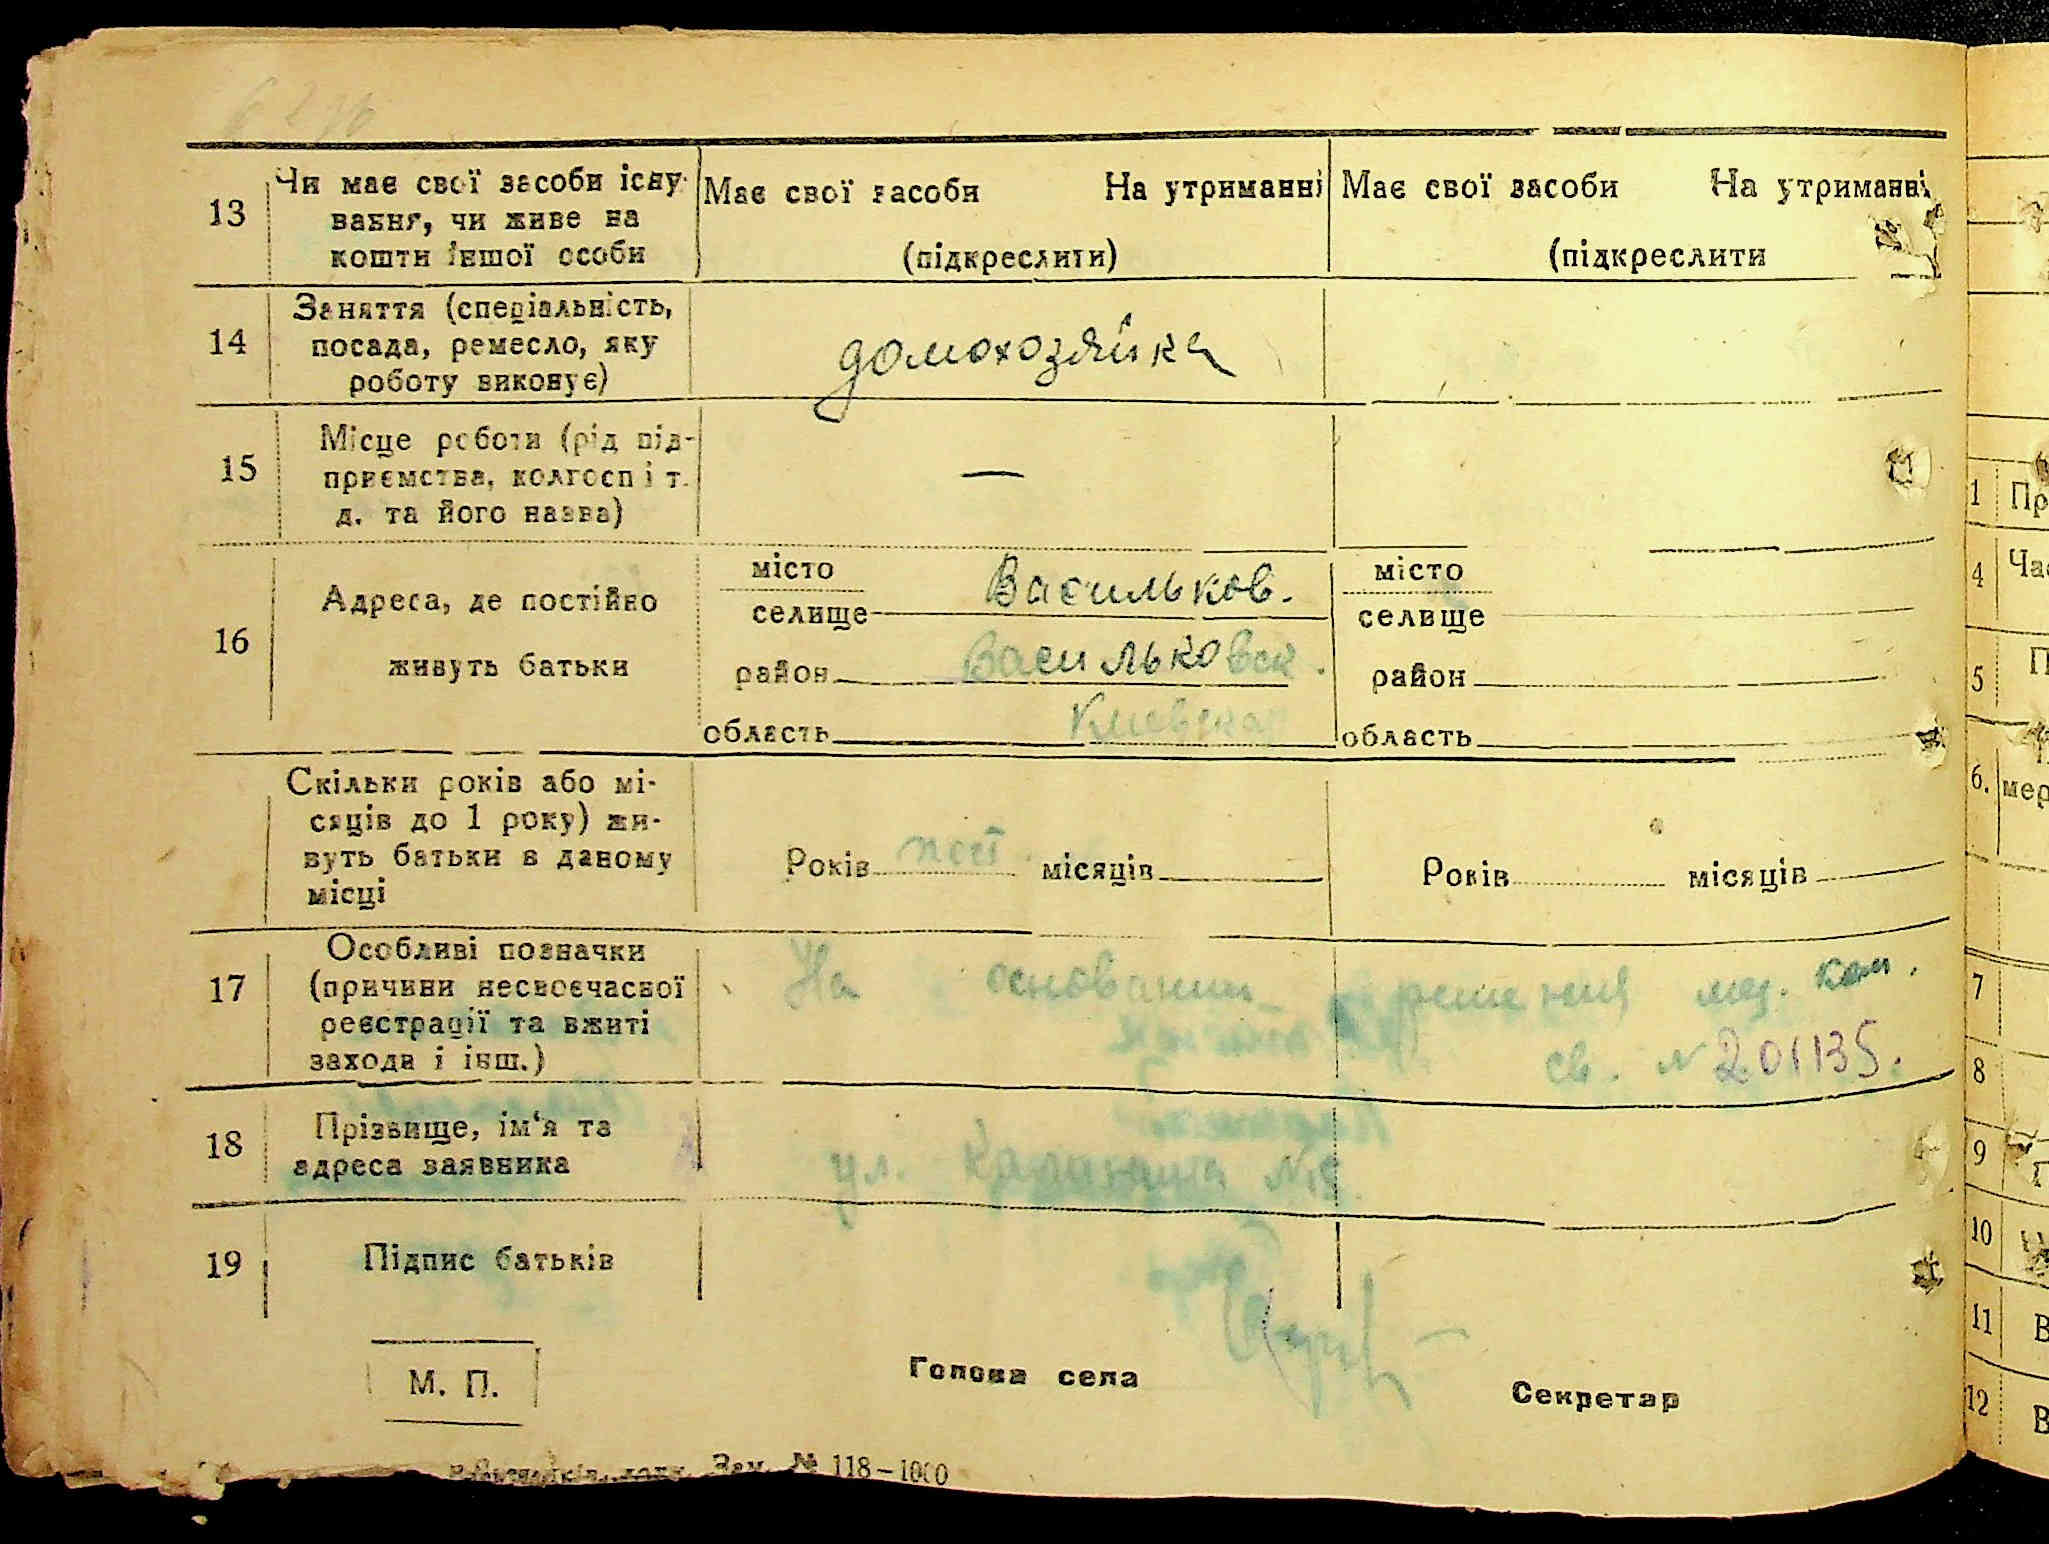 13
Чи має свої засоби існу-
вання, чи живе на
кошти іншої особи
Має свої засоби На утриманні
(підкреслити)
Має свої засоби На утриманні
(підкреслити
14
Заняття (спеціальність,
посада, ремесло, яку
роботу виконує)
домохозяйка
15
Місце роботи (рід під-
приємства, колгосп і т.
д. та його назва)
—
16
Адреса, де постійно
живуть батьки
місто
селище Васильков.
район Васильковск.
область Киевская
місто
селище
район
область
Скільки років або мі-
сяців до 1 року) жи-
вуть батьки в даному
місці
Років пост. місяців
Років місяців
17
Особливі позначки
(причини несвоєчасної
реєстрації та вжиті
заходи і інш.)
На основании решения мед. ком.
св. № 201135.
18
Прізвище, ім‘я та
адреса заявника
ул. Калинина
19
Підпис батьків
М. П.
Голова села
Секретар
Зам. № 118–1000
1 Пр
4 Час
5 П
6. мер
7
8
9
10
11 В
12 В